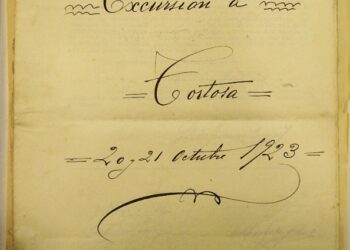 Excursion a
= Tortosa =
= 20 y 21 Octubre 1923 =